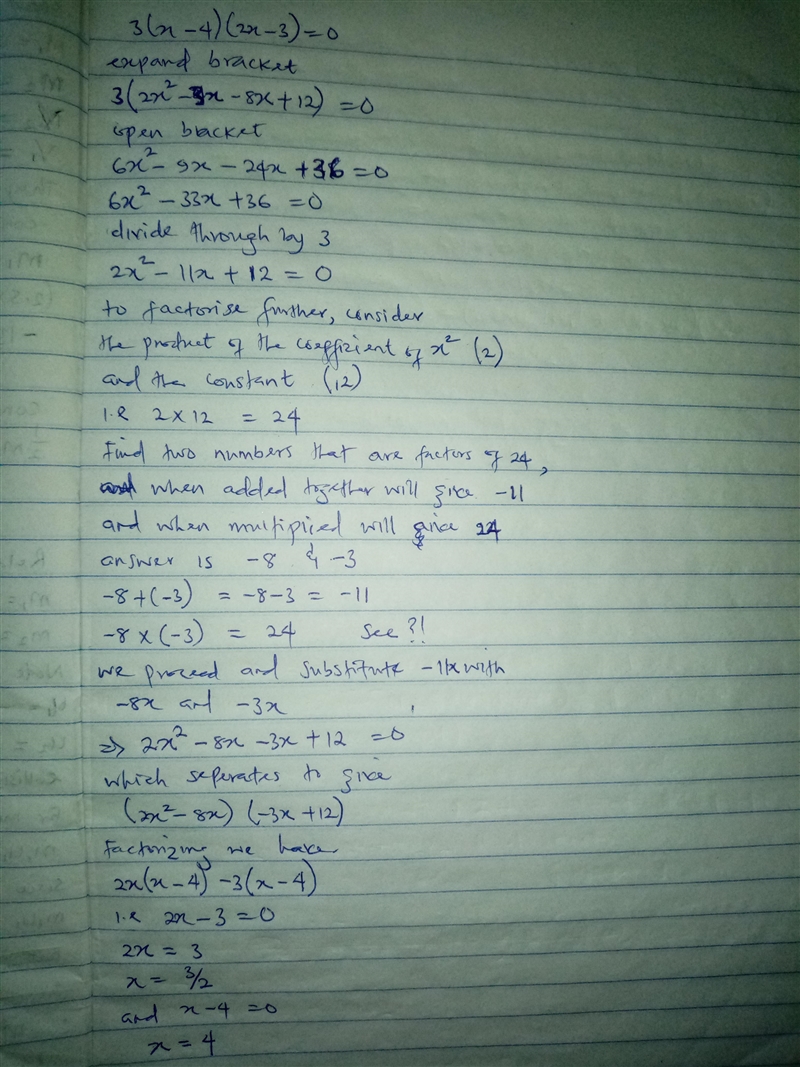 3(x-4)(2x-3)=0
expand bracket
3(2x²-3x-8x+12) =0
open bracket
6x²-9x-24x+36=0
6x²-33x+36 =0
divide through by 3
2x²-11x+12 = 0
to factorise further, consider
the product of the coeffizient of x² (2)
and the constant (12)
i.e 2x12 = 24
Find two numbers that are factors of 24,
when added together will give -11
and when multiplied will give 24
answer is -8 & -3
-8+(-3) = -8-3 = -11
-8x(-3) = 24 See?!
we proceed and substitute -11x with
-8x and -3x
=> 2x²-8x-3x+12 =0
which seperates to give
(2x²-8x)(-3x+12)
factorizing we have
2x(x-4) -3(x-4)
i.e 2x-3=0
2x = 3
x= 3/2
and x-4 =0
x = 4